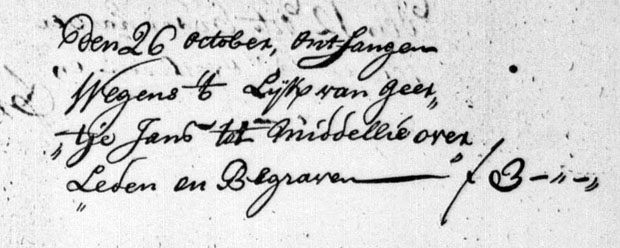 den 26 october, ontfangen
Wegens 't Lijk van Geer„
„tje Jans tot Middellie over
„Leden en Begraven — ƒ 3-"-"